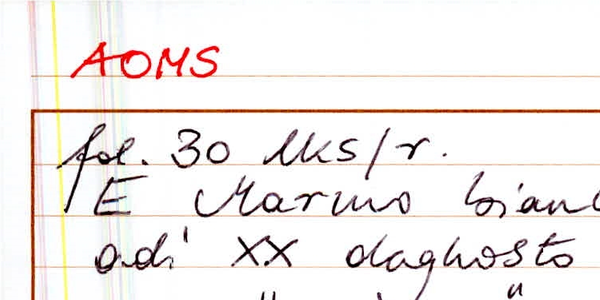 AOMS
fol. 30 lks/r.
E Marino bian
adi' XX daghosto